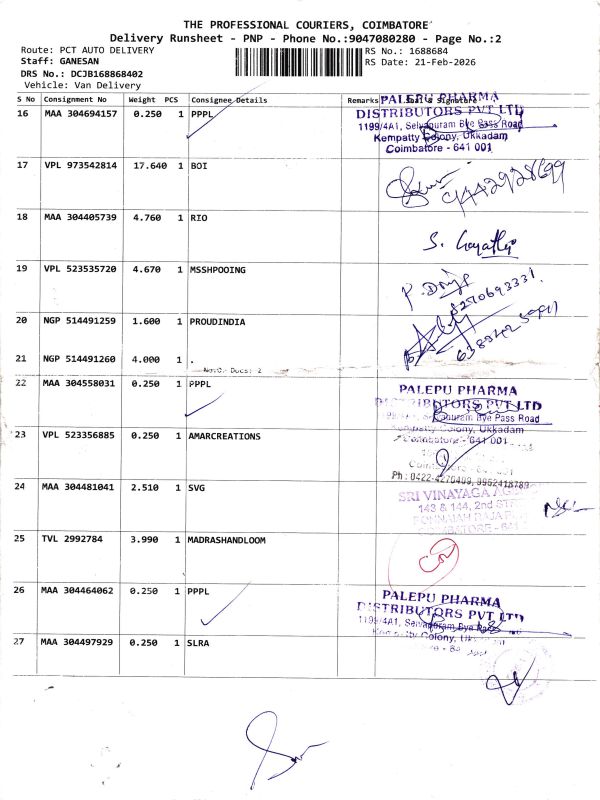 THE PROFESSIONAL COURIERS, COIMBATORE
Delivery Runsheet - PNP - Phone No.:9047080280 - Page No.:2
Route: PCT AUTO DELIVERY
RS No.: 1688684
Staff: GANESAN
RS Date: 21-Feb-2026
DRS No.: DCJB168868402
Vehicle: Van Delivery
S No Consignment No Weight PCS Consignee Details Remarks Seal & Signature
16 MAA 304694157 0.250 1 PPPL
PALEPU PHARMA
DISTRIBUTORS PVT LTD
1199/4A1, Selvapuram Bye Pass Road
Kempatty Colony, Ukkadam
Coimbatore - 641 001
17 VPL 973542814 17.640 1 BOI
18 MAA 304405739 4.760 1 RIO
S. Gayathri
19 VPL 523535720 4.670 1 MSSHPOOING
20 NGP 514491259 1.600 1 PROUDINDIA
21 NGP 514491260 4.000 1 .
No.Of Docs: 2
22 MAA 304558031 0.250 1 PPPL
PALEPU PHARMA
DISTRIBUTORS PVT LTD
Selvapuram Bye Pass Road
Kempatty Colony, Ukkadam
Coimbatore - 641 001
23 VPL 523356885 0.250 1 AMARCREATIONS
Ph : 0422-4270409, 9962418789
24 MAA 304481041 2.510 1 SVG
SRI VINAYAGA
143 & 144, 2nd
PONNAIAH RAJA
COIMBATORE - 641
25 TVL 2992784 3.990 1 MADRASHANDLOOM
26 MAA 304464062 0.250 1 PPPL
PALEPU PHARMA
DISTRIBUTORS PVT LTD
1199/4A1, Selvapuram Bye Pass
Kempatty Colony,
27 MAA 304497929 0.250 1 SLRA